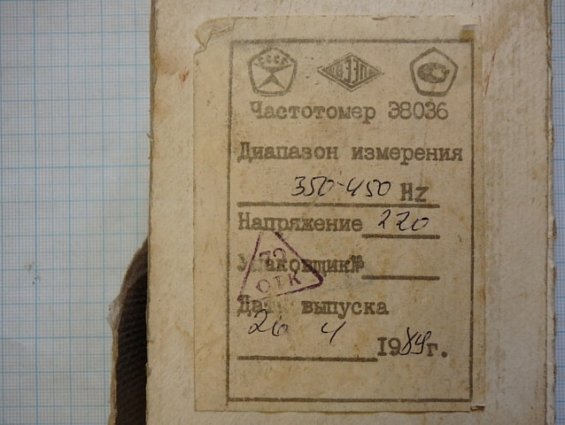 СССР
Частотомер Э8036
Диапазон измерения
350-450 Hz
Напряжение 220
79
Упаковщик№
ОТК
Дата выпуска
26 4
1989г.